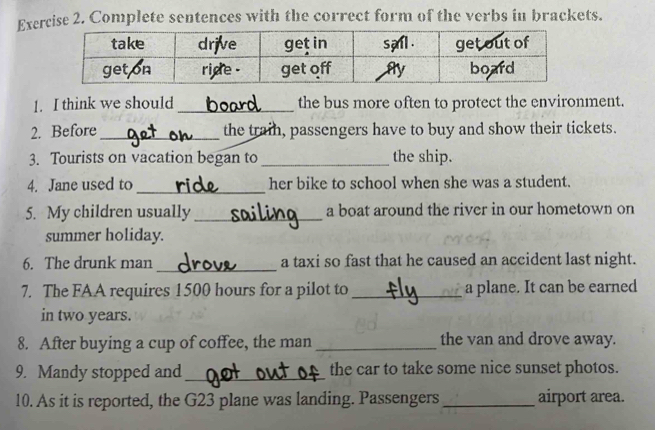 Exercise 2. Complete sentences with the correct form of the verbs in brackets.
take drive get in sail get out of
get on ride get off fly board
1. I think we should board the bus more often to protect the environment.
2. Before get on the train, passengers have to buy and show their tickets.
3. Tourists on vacation began to ____________ the ship.
4. Jane used to ride her bike to school when she was a student.
5. My children usually sailing a boat around the river in our hometown on
summer holiday.
6. The drunk man drove a taxi so fast that he caused an accident last night.
7. The FAA requires 1500 hours for a pilot to fly a plane. It can be earned
in two years.
8. After buying a cup of coffee, the man ____________ the van and drove away.
9. Mandy stopped and got out of the car to take some nice sunset photos.
10. As it is reported, the G23 plane was landing. Passengers __________ airport area.